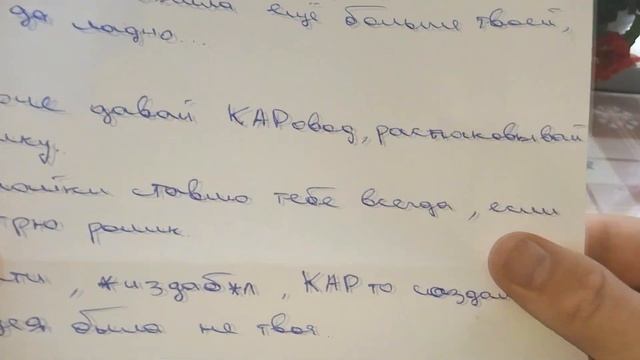 ещё больше твоей,
да ладно...
давай КАРовод, распаковывай
ставлю тебе всегда, если
ролик.
„ *издаб*л „ КАР то создал
была не твоя